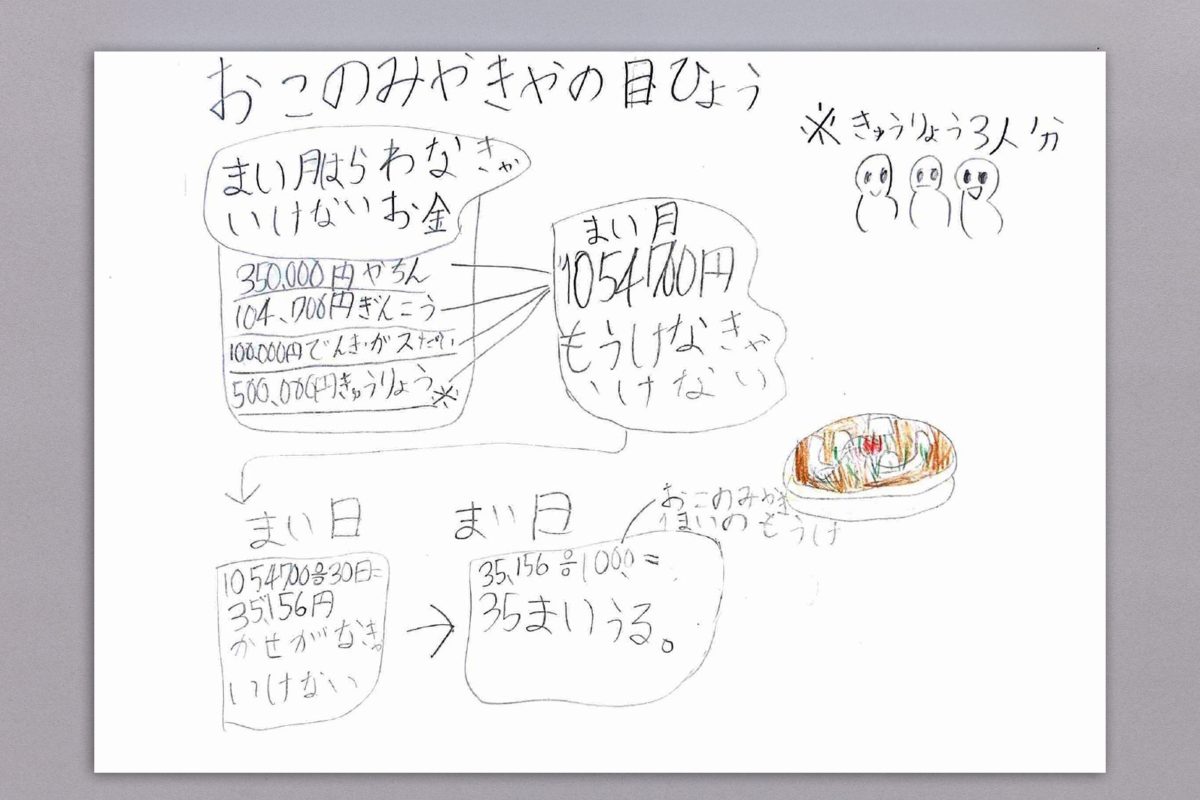 おこのみやきやの目ひょう
※きゅうりょう3人分
まい月はらわなきゃ
いけないお金
350,000円やちん
104,700円ぎんこう
100,000円でんき・ガスだい
500,000円きゅうりょう※
まい月
1054700円
もうけなきゃ
いけない
まい日
1054700÷30日=
35,156円
かせがなきゃ
いけない
まい日
おこのみやき
1まいのもうけ
35,156÷1000=
35まいうる。